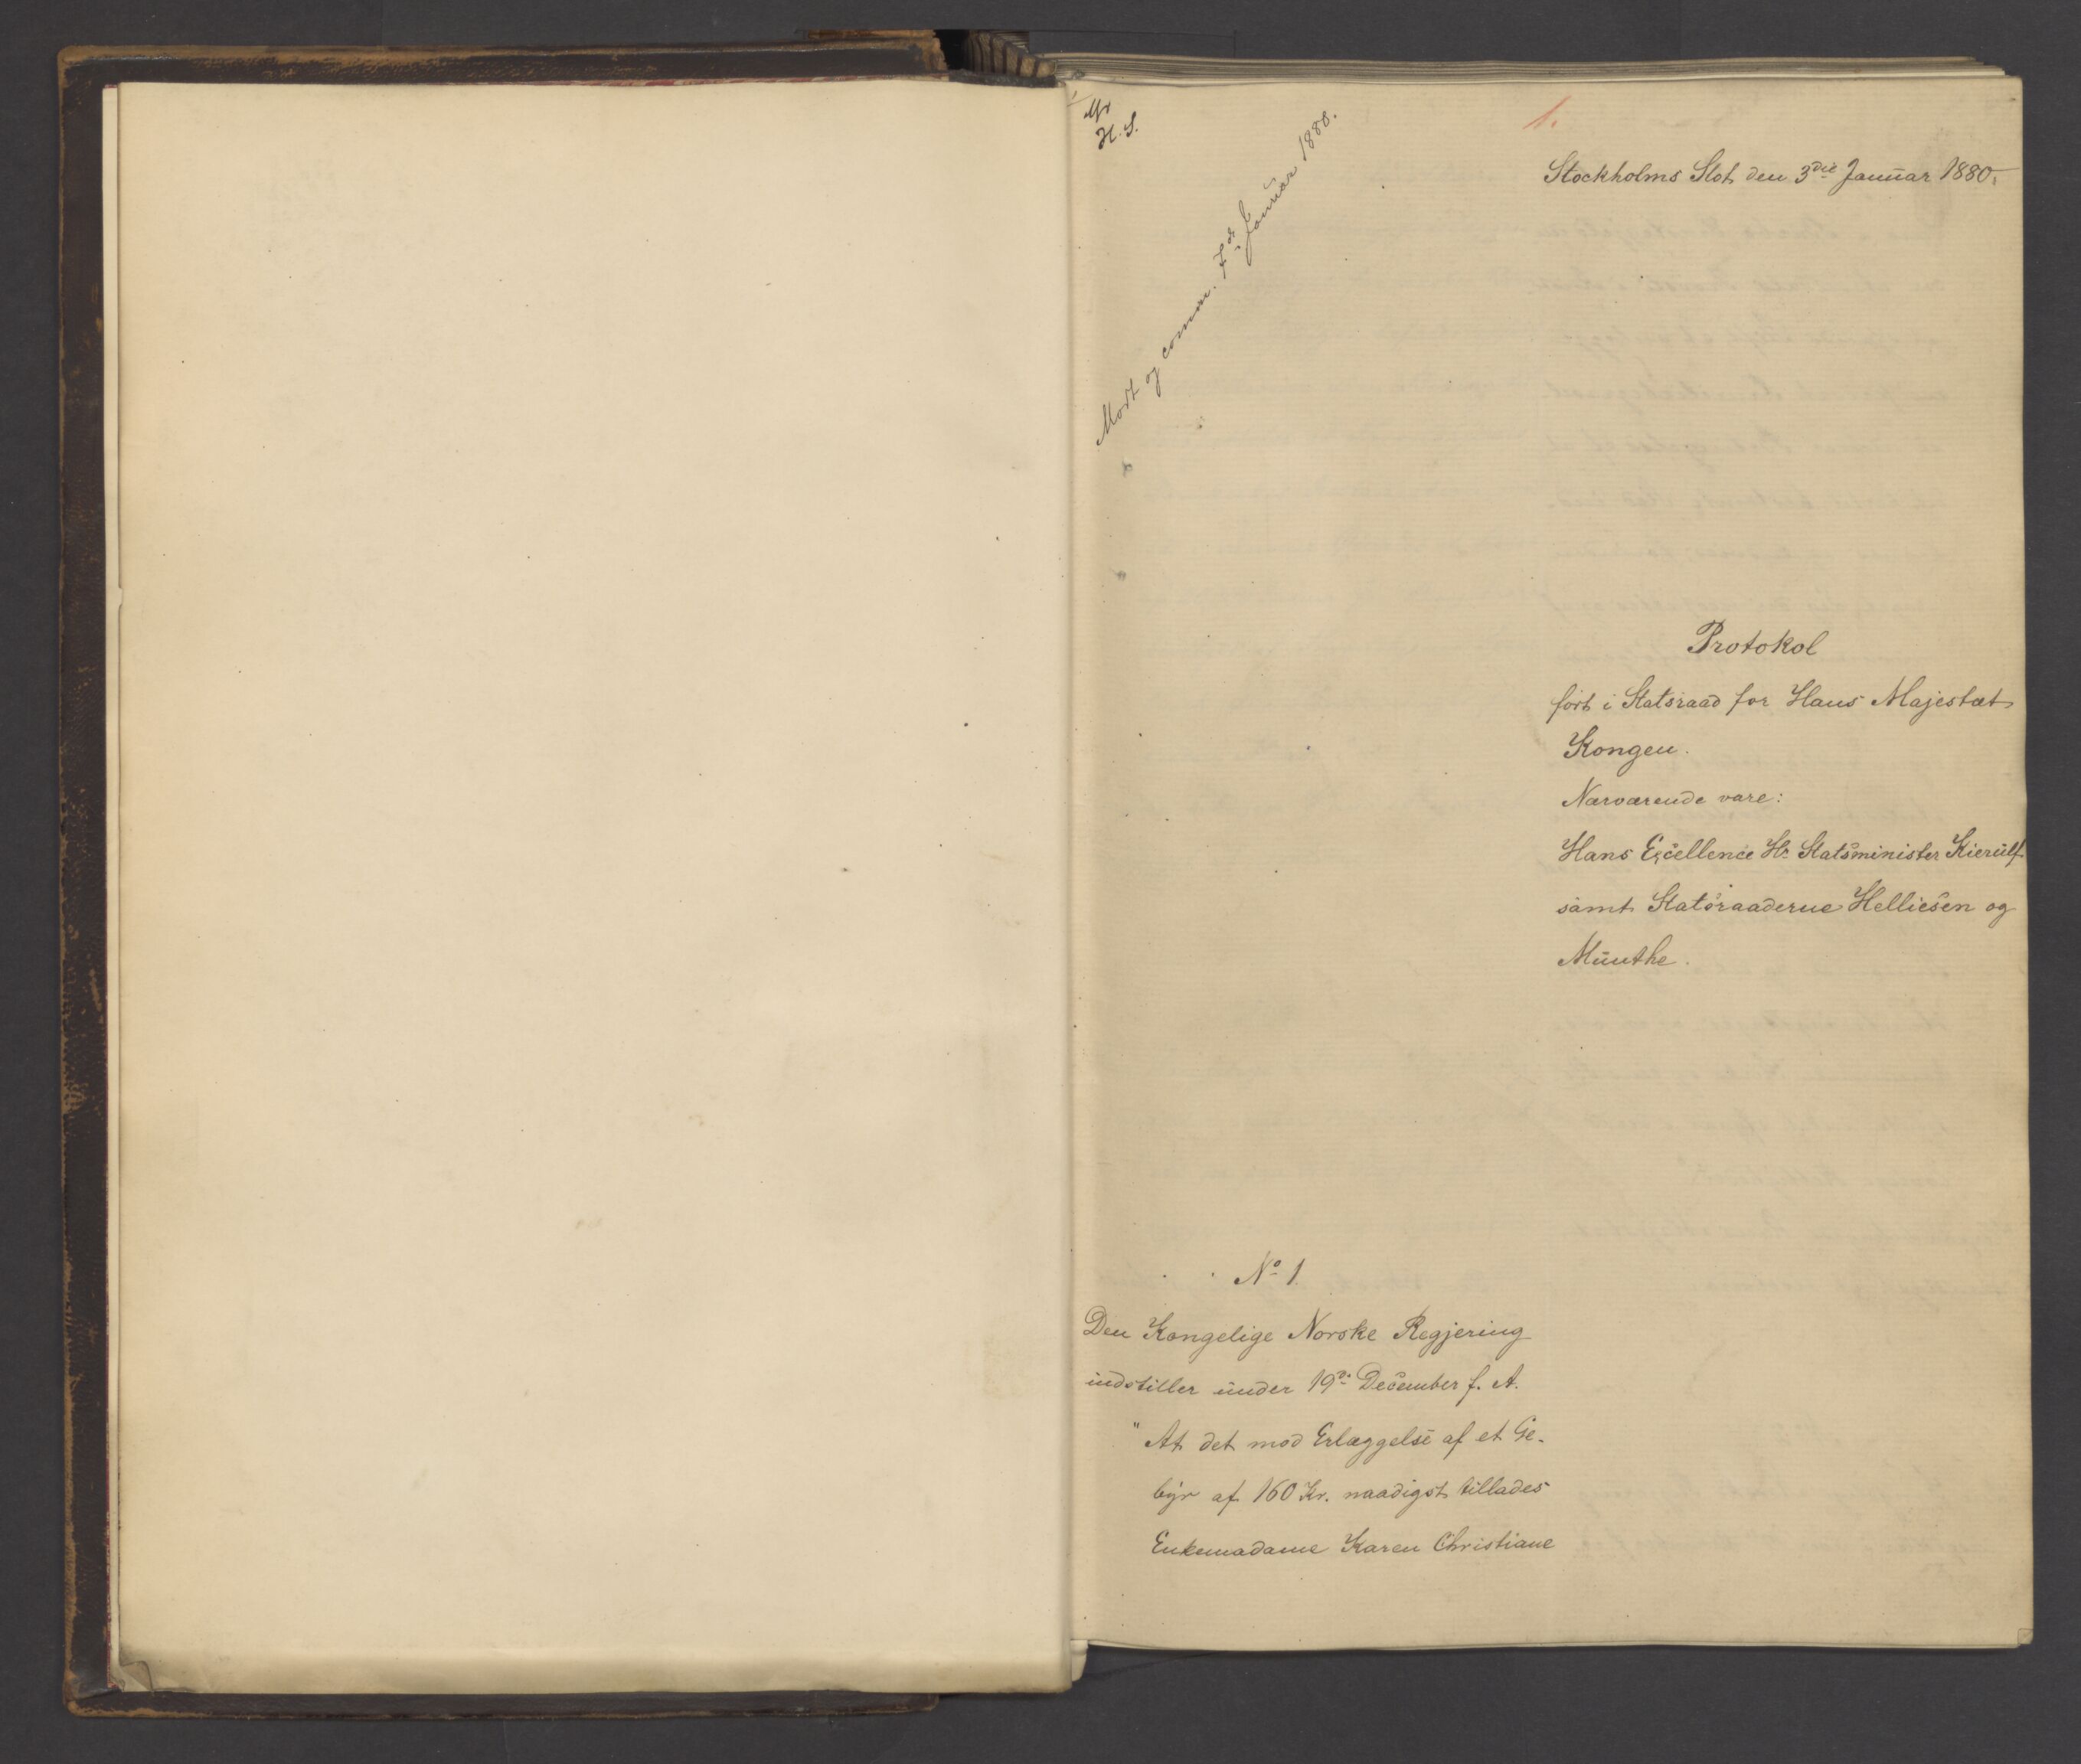 1.
H. S.
Modt og comm. 7de Januar 1880.
Stockholms Slot den 3die Januar 1880.
Protokol
ført i Statsraad for Hans Majestæt
Kongen.
Nærværende vare:
Hans Excellence Hr. Statsminister Kierulf
samt Statsraaderne Helliesen og
Munthe.
No 1.
Den Kongelige Norske Regjering
indstiller under 19de December f. A.
"At det mod Erlæggelse af et Ge-
byr af 160 Kr. naadigst tillades
Enkemadame Karen Christiane